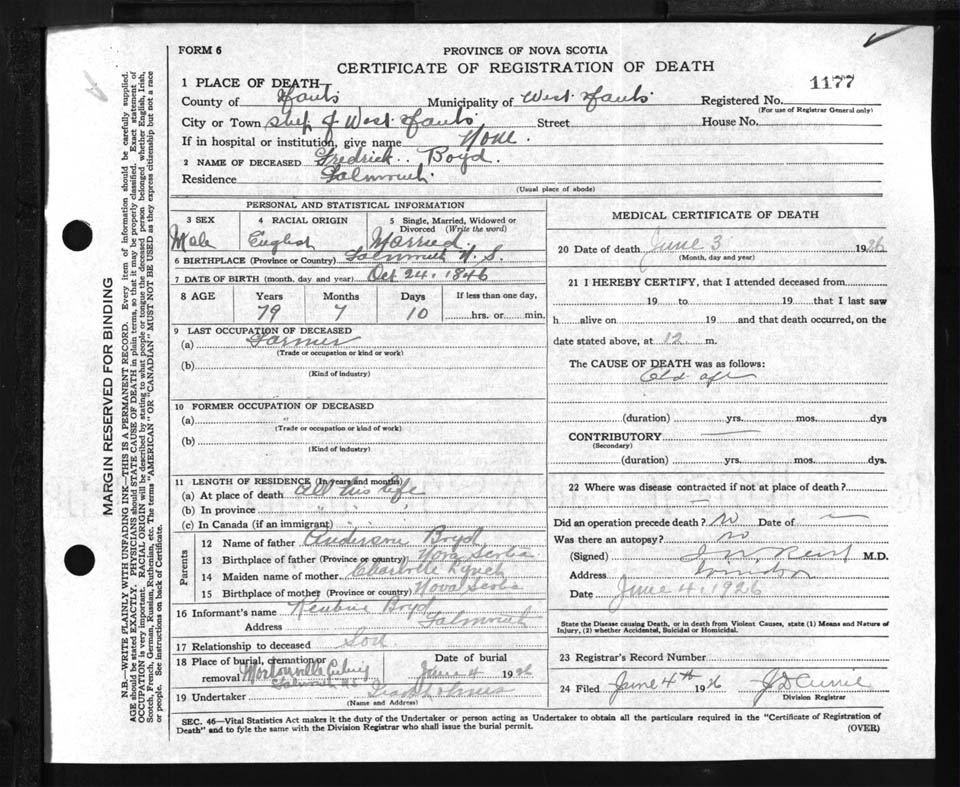 FORM 6
PROVINCE OF NOVA SCOTIA
CERTIFICATE OF REGISTRATION OF DEATH
1177
1 PLACE OF DEATH
County of Hants Municipality of West Hants Registered No.
(For use of Registrar General only)
City or Town of West Hants Street House No.
If in hospital or institution, give name None.
2 NAME OF DECEASED Fredrick Boyd.
Residence Falmouth
(Usual place of abode)
PERSONAL AND STATISTICAL INFORMATION
3 SEX Male
4 RACIAL ORIGIN English
5 Single, Married, Widowed or Divorced (Write the word) Married
6 BIRTHPLACE (Province or Country) Falmouth N. S.
7 DATE OF BIRTH (month, day and year) Oct 24. 1846
8 AGE Years Months Days If less than one day,
79 7 10 hrs. or min.
9 LAST OCCUPATION OF DECEASED
(a) Farmer
(Trade or occupation or kind or work)
(b)
(Kind of industry)
10 FORMER OCCUPATION OF DECEASED
(a) "
(Trade or occupation or kind of work)
(b)
(Kind of industry)
11 LENGTH OF RESIDENCE (In years and months)
(a) At place of death All his life
(b) In province
(c) In Canada (if an immigrant)
Parents
12 Name of father Boyd
13 Birthplace of father (Province or country) Nova Scotia
14 Maiden name of mother Charlotte Lynch
15 Birthplace of mother (Province or country) Nova Scotia
16 Informant's name Boyd
Address Falmouth
17 Relationship to deceased Son
18 Place of burial, cremation or removal Falmouth N.S.
Date of burial June 4 1926
19 Undertaker
(Name and Address)
MEDICAL CERTIFICATE OF DEATH
20 Date of death June 3 1926
(Month, day and year)
21 I HEREBY CERTIFY, that I attended deceased from
19 to 19 that I last saw
h alive on 19 and that death occurred, on the
date stated above, at 12 m.
The CAUSE OF DEATH was as follows:
Old age
(duration) yrs. mos. dys
CONTRIBUTORY —
(Secondary)
(duration) yrs. mos. dys
22 Where was disease contracted if not at place of death?
—
Did an operation precede death? no Date of —
Was there an autopsy? no
(Signed) M.D.
Address Windsor
Date June 4. 1926
State the Disease causing Death, or in death from Violent Causes, state (1) Means and Nature of
Injury, (2) whether Accidental, Suicidal or Homicidal.
23 Registrar's Record Number
24 Filed June 4th 1926
Division Registrar
SEC. 46—Vital Statistics Act makes it the duty of the Undertaker or person acting as Undertaker to obtain all the particulars required in the "Certificate of Registration of
Death" and to fyle the same with the Division Registrar who shall issue the burial permit.
(OVER)
MARGIN RESERVED FOR BINDING
N.B.—WRITE PLAINLY WITH UNFADING INK—THIS IS A PERMANENT RECORD. Every item of information should be carefully supplied.
AGE should be stated EXACTLY. PHYSICIANS should STATE CAUSE OF DEATH in plain terms, so that it may be properly classified. Exact statement of
OCCUPATION is very important. RACIAL ORIGIN will be described by stating to what people or tongue the deceased person belonged whether English, Irish,
Scotch, French, German, Russian, Ruthenian, etc. The terms "AMERICAN" OR "CANADIAN" MUST NOT BE USED as they express citizenship but not a race
or people. See instructions on back of Certificate.